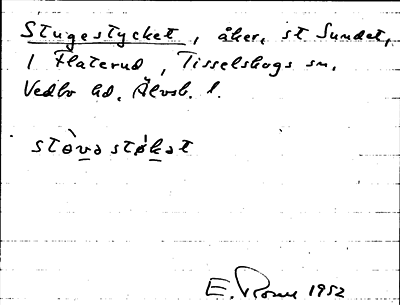 Stugestycket, åker, st Sundet,
1 Flaterud, Tisselskogs sn.
Vedbo hd. Älvsb. l.
stòvəstøkət
E. 1952